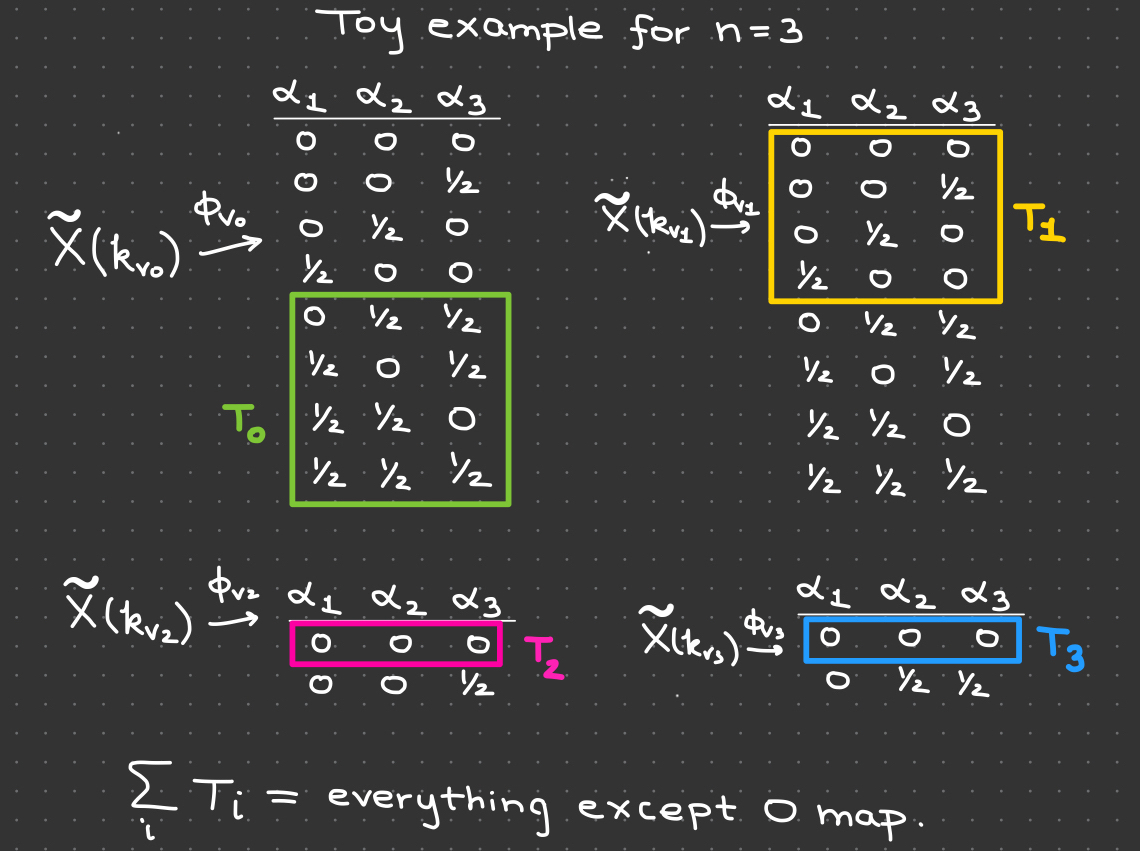 Toy example for n=3
α₁ α₂ α₃
0 0 0
0 0 ½
0 ½ 0
½ 0 0
0 ½ ½
½ 0 ½
½ ½ 0
½ ½ ½
X̃(k_v₀) →
ϕ_v₀
T₀
α₁ α₂ α₃
0 0 0
0 0 ½
0 ½ 0
½ 0 0
0 ½ ½
½ 0 ½
½ ½ 0
½ ½ ½
X̃(k_v₁) →
ϕ_v₁
T₁
X̃(k_v₂) →
ϕ_v₂
α₁ α₂ α₃
0 0 0
0 0 ½
T₂
X̃(k_v₃) →
ϕ_v₃
α₁ α₂ α₃
0 0 0
0 ½ ½
T₃
∑_i T_i = everything except 0 map.